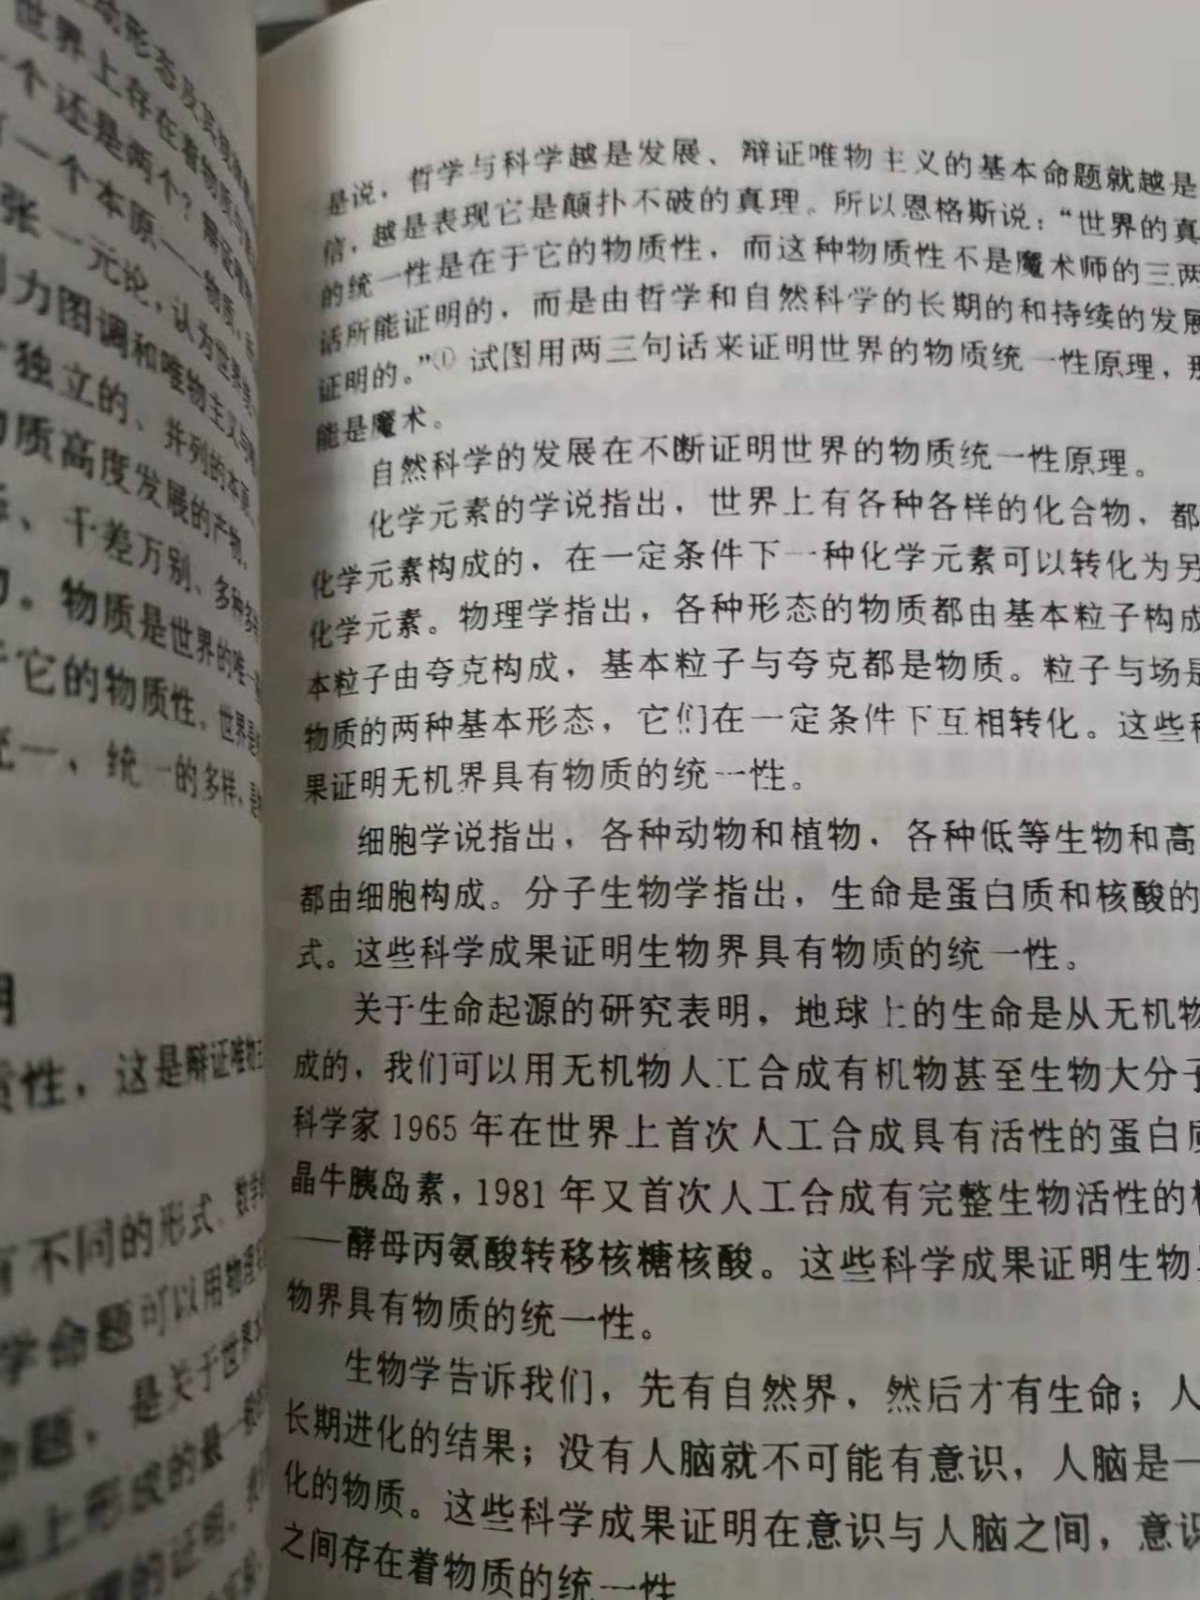 动形态及其
世界上存在着物质与
个还是两个？辩证唯
一个本原——物质，
张一元论，认为世界
力图调和唯物主义与
独立的、并列的本原。
质高度发展的产物。
、千差万别、多种多
。物质是世界的唯一
它的物质性。世界是
统一，统一的多样，是
明
质性，这是辩证唯物主
有不同的形式。数学
学命题可以用物理
命题，是关于世界
上形成的最一般
的证明，
是说，哲学与科学越是发展、辩证唯物主义的基本命题就越是
信，越是表现它是颠扑不破的真理。所以恩格斯说：“世界的真
的统一性是在于它的物质性，而这种物质性不是魔术师的三两
话所能证明的，而是由哲学和自然科学的长期的和持续的发展
证明的。”① 试图用两三句话来证明世界的物质统一性原理，那
能是魔术。
自然科学的发展在不断证明世界的物质统一性原理。
化学元素的学说指出，世界上有各种各样的化合物，都
化学元素构成的，在一定条件下一种化学元素可以转化为另
化学元素。物理学指出，各种形态的物质都由基本粒子构成
本粒子由夸克构成，基本粒子与夸克都是物质。粒子与场是
物质的两种基本形态，它们在一定条件下互相转化。这些科
果证明无机界具有物质的统一性。
细胞学说指出，各种动物和植物，各种低等生物和高
都由细胞构成。分子生物学指出，生命是蛋白质和核酸的
式。这些科学成果证明生物界具有物质的统一性。
关于生命起源的研究表明，地球上的生命是从无机物
成的，我们可以用无机物人工合成有机物甚至生物大分子
科学家1965年在世界上首次人工合成具有活性的蛋白质
晶牛胰岛素，1981年又首次人工合成有完整生物活性的核
——酵母丙氨酸转移核糖核酸。这些科学成果证明生物界
物界具有物质的统一性。
生物学告诉我们，先有自然界，然后才有生命；人
长期进化的结果；没有人脑就不可能有意识，人脑是一
化的物质。这些科学成果证明在意识与人脑之间，意识
之间存在着物质的统一性